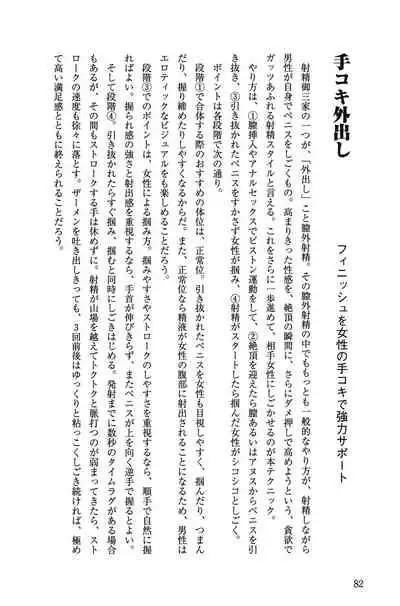 手コキ外出し
フィニッシュを女性の手コキで強力サポート
射精御三家の一つが、「外出し」こと膣外射精。その膣外射精の中でももっとも一般的なやり方が、射精しながら
男性が自身でペニスをしごくもの。高まりきった性感を、絶頂の瞬間に、さらにダメ押しで高めようという、貪欲で
ガッツあふれる射精スタイルと言える。これをさらに一歩進めて、相手女性にしごかせるのが本テクニック。
やり方は、①膣挿入やアナルセックスでピストン運動をして、②絶頂を迎えたら膣あるいはアヌスからペニスを引
き抜き、③引き抜かれたペニスをすかさず女性が掴み、④射精がスタートしたら掴んだ女性がシコシコとしごく。
ポイントは各段階で次の通り。
段階①で合体する際のおすすめの体位は、正常位。引き抜かれたペニスを女性も目視しやすく、掴んだり、つまん
だり、握り締めたりしやすくなるからだ。また、正常位なら精液が女性の腹部に射出されることになるため、男性は
エロティックなビジュアルをも楽しめることだろう。
段階③でのポイントは、女性による掴み方。掴みやすさやストロークのしやすさを重視するなら、順手で自然に握
ればよい。握られ感の強さと射出感を重視するなら、手首が伸びきらず、またペニスが上を向く逆手で握るとよい。
そして段階④。引き抜かれたらすぐ掴み、掴むと同時にしごきはじめる。発射までに数秒のタイムラグがある場合
もあるが、その間もストロークする手は休めずに。射精が山場を越えてトクトクと脈打つのが弱まってきたら、スト
ロークの速度も徐々に落とす。ザーメンを吐き出しきっても、3回前後はゆっくりと粘っこくしごき続ければ、極め
て高い満足感とともに終えられることだろう。
82